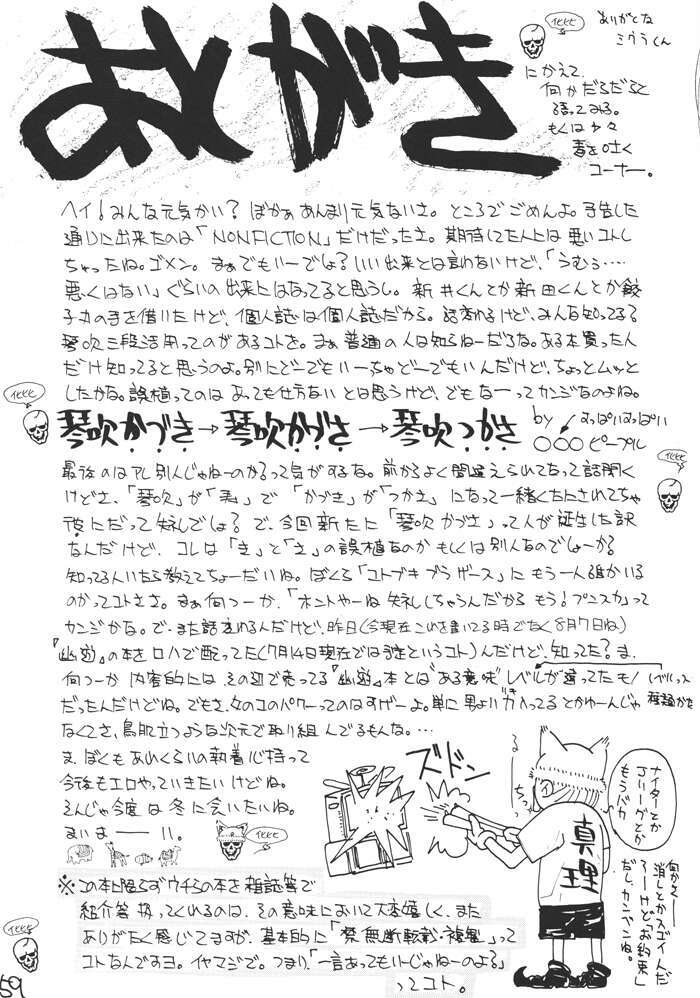 あとがき
ケヒヒヒ
ありがとな
ミウラくん
にかえて、
何かだらだらと
語ってみる。
もしくは少々
毒を吐く
コーナー。
ヘイ!みんな元気かい?ぼかぁあんまり元気ないさ。ところでごめんよ。予告した
通りに出来たのは「NONFICTION」だけだったさ。期待してた人には悪いコトし
ちゃったね。ゴメン。まぁでもいーでしょ?いい出来とは言わないけど、「うむぅ‥‥
悪くはない」ぐらいの出来にはなってると思うし。新井くんとか新田くんとか餃
子丸の手を借りたけど、個人誌は個人誌だから。話変わるけど、みんな知ってる?
琴吹三段活用ってのがあるコトを。まぁ普通の人は知らねーだろな。ある本買った人
だけ知ってると思うのよ。別にどーでもいーちゃどーでもいんだけど、ちょっとムッと
したかな。誤植ってのはあっても仕方ないとは思うけど、でもなーってカンジなのよね。
ケヒヒヒ
琴吹かづき→琴吹かづさ→琴吹つかさ
by
○○○ピープル
最後のはアレ別人じゃねーのか?って気がするな。前からよく間違えられてなって話聞く
けどさ、「琴吹」が「」で「かづき」が「つかさ」になって一緒くたにされてちゃ
彼にだって失礼でしょ?で、今回新たに「琴吹かづさ」って人が誕生した訳
なんだけど、コレは「き」と「さ」の誤植なのかもしくは別人なのでしょーか?
知ってる人いたら教えてちょーだいね。ぼくら「コトブキブラザーズ」にもう一人誰かいる
のかってコトさ。まぁ何つーか、「ホントやーね失礼しちゃうんだからもう!プンスカ」って
カンジかな。で、また話変わるんだけど、昨日(今現在これを書いてる時でなく8月7日ね)
『幽遊』の本をロハで配ってた(7月14日現在では予定というコト)んだけど、知った?ま、
何つーか内容的にはその辺で売ってる『幽遊』本とは"ある意味"レベルが違ってたモノ
レベルってか種類かな
だったんだけどね。でもさ、女のコのパワーってのはすげーよ。単に男より気合入ってるとかゆーんじゃ
なくてさ、鳥肌立つような次元で取り組んでるもんな。…
ま、ぼくもあれくらいの執着心持って
今後もエロやっていきたいけどね。
そんじゃ今度は冬に会いたいね。
まいまーーい。
ケヒヒヒ
ズドン
るちっ
ナイターとか
Jリーグとか
もうバカ
真理
消しとかスゴイんだ
ろーけど「お約束」
だし、カンベンね。
※この本に限らずウチらの本を雑誌等で
紹介等扱ってくれるのは、その意味において大変嬉しく、また
ありがたく感じてますが、基本的に「禁無断転載・複製」って
コトなんですヨ。イヤマジで。つまり、「一言あってもいーじゃねーのよる?」
ってコト。
ケヒヒヒ
59